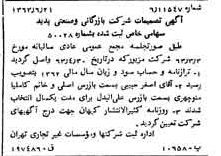 شماره ۶/۱۱۵۴۷ ۱۳۶۳/۶/۲۱
آگهی تصمیمات شرکت بازرگانی وصنعتی پدید
سهامی خاص ثبت شده بشماره ۵۰۰۲۸
طبق صورتجلسه مجمع عمومی عادی سالیانه مورخ
شرکت مزبورکه درتاریخ ۶۳/۶/۳ واصل گردید
۱ـ ترازنامه و حساب سود و زیان سال مالی ۱۳۶۲ بتصویب
رسید ۲ـ آقای اصغر حبیبی بسمت بازرس اصلی و خانم کاملیا
منوچهری بسمت بازرس علی‌البدل برای مدت یکسال انتخاب
شدند ۳ـ روزنامه کثیرالانتشار کیهان جهت درج آگهیهای
شرکت تعیین گردید.
اداره ثبت شرکتها و مؤسسات غیر تجاری تهران
پ-۱۰۹۵۸ ف-۱۹۷۴۸۶